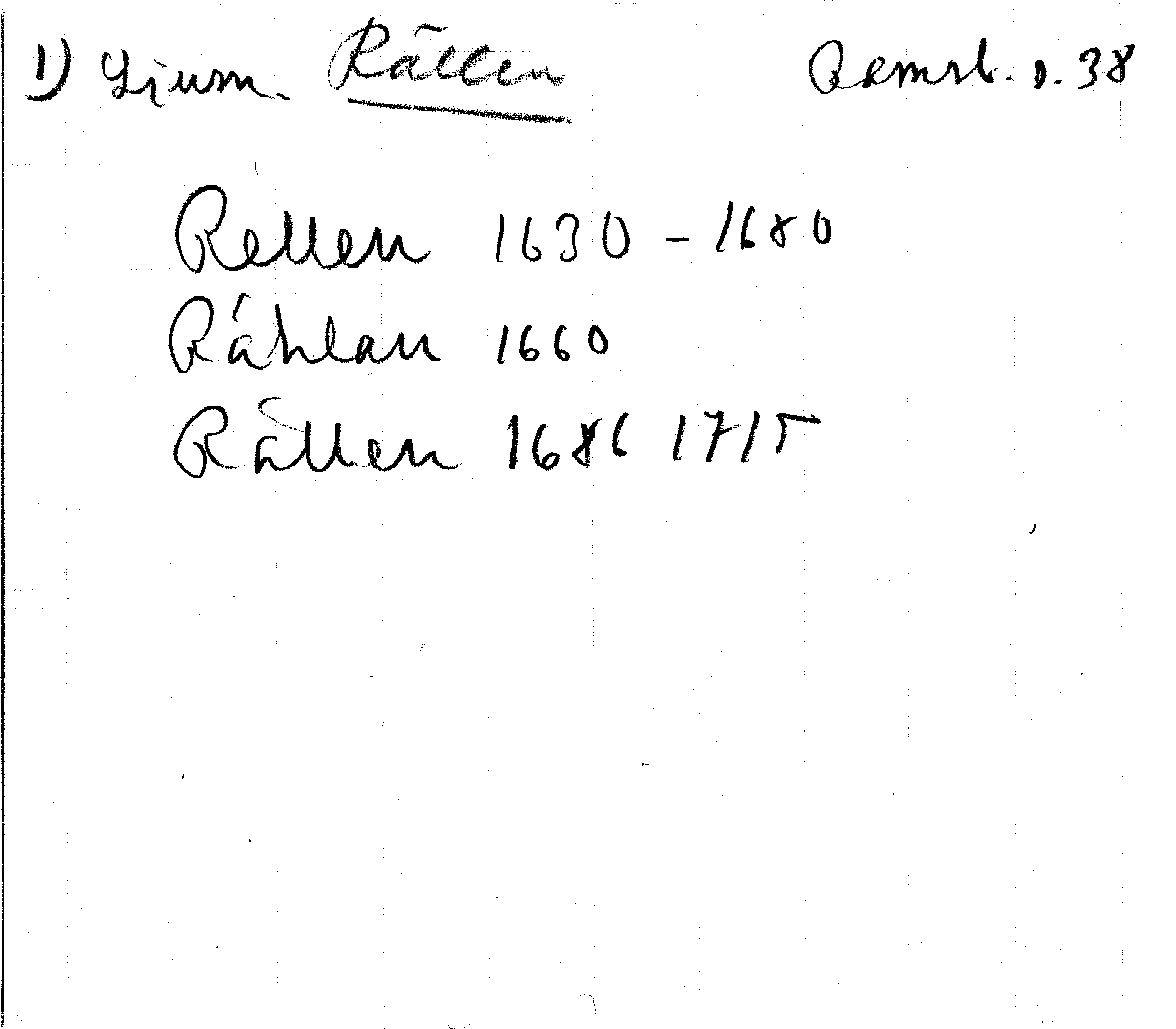 1) Ljusn. Rällen Ramsb. s. 38
Rellen 1630 - 1680
Råhlan 1660
Rällen 1686 1715